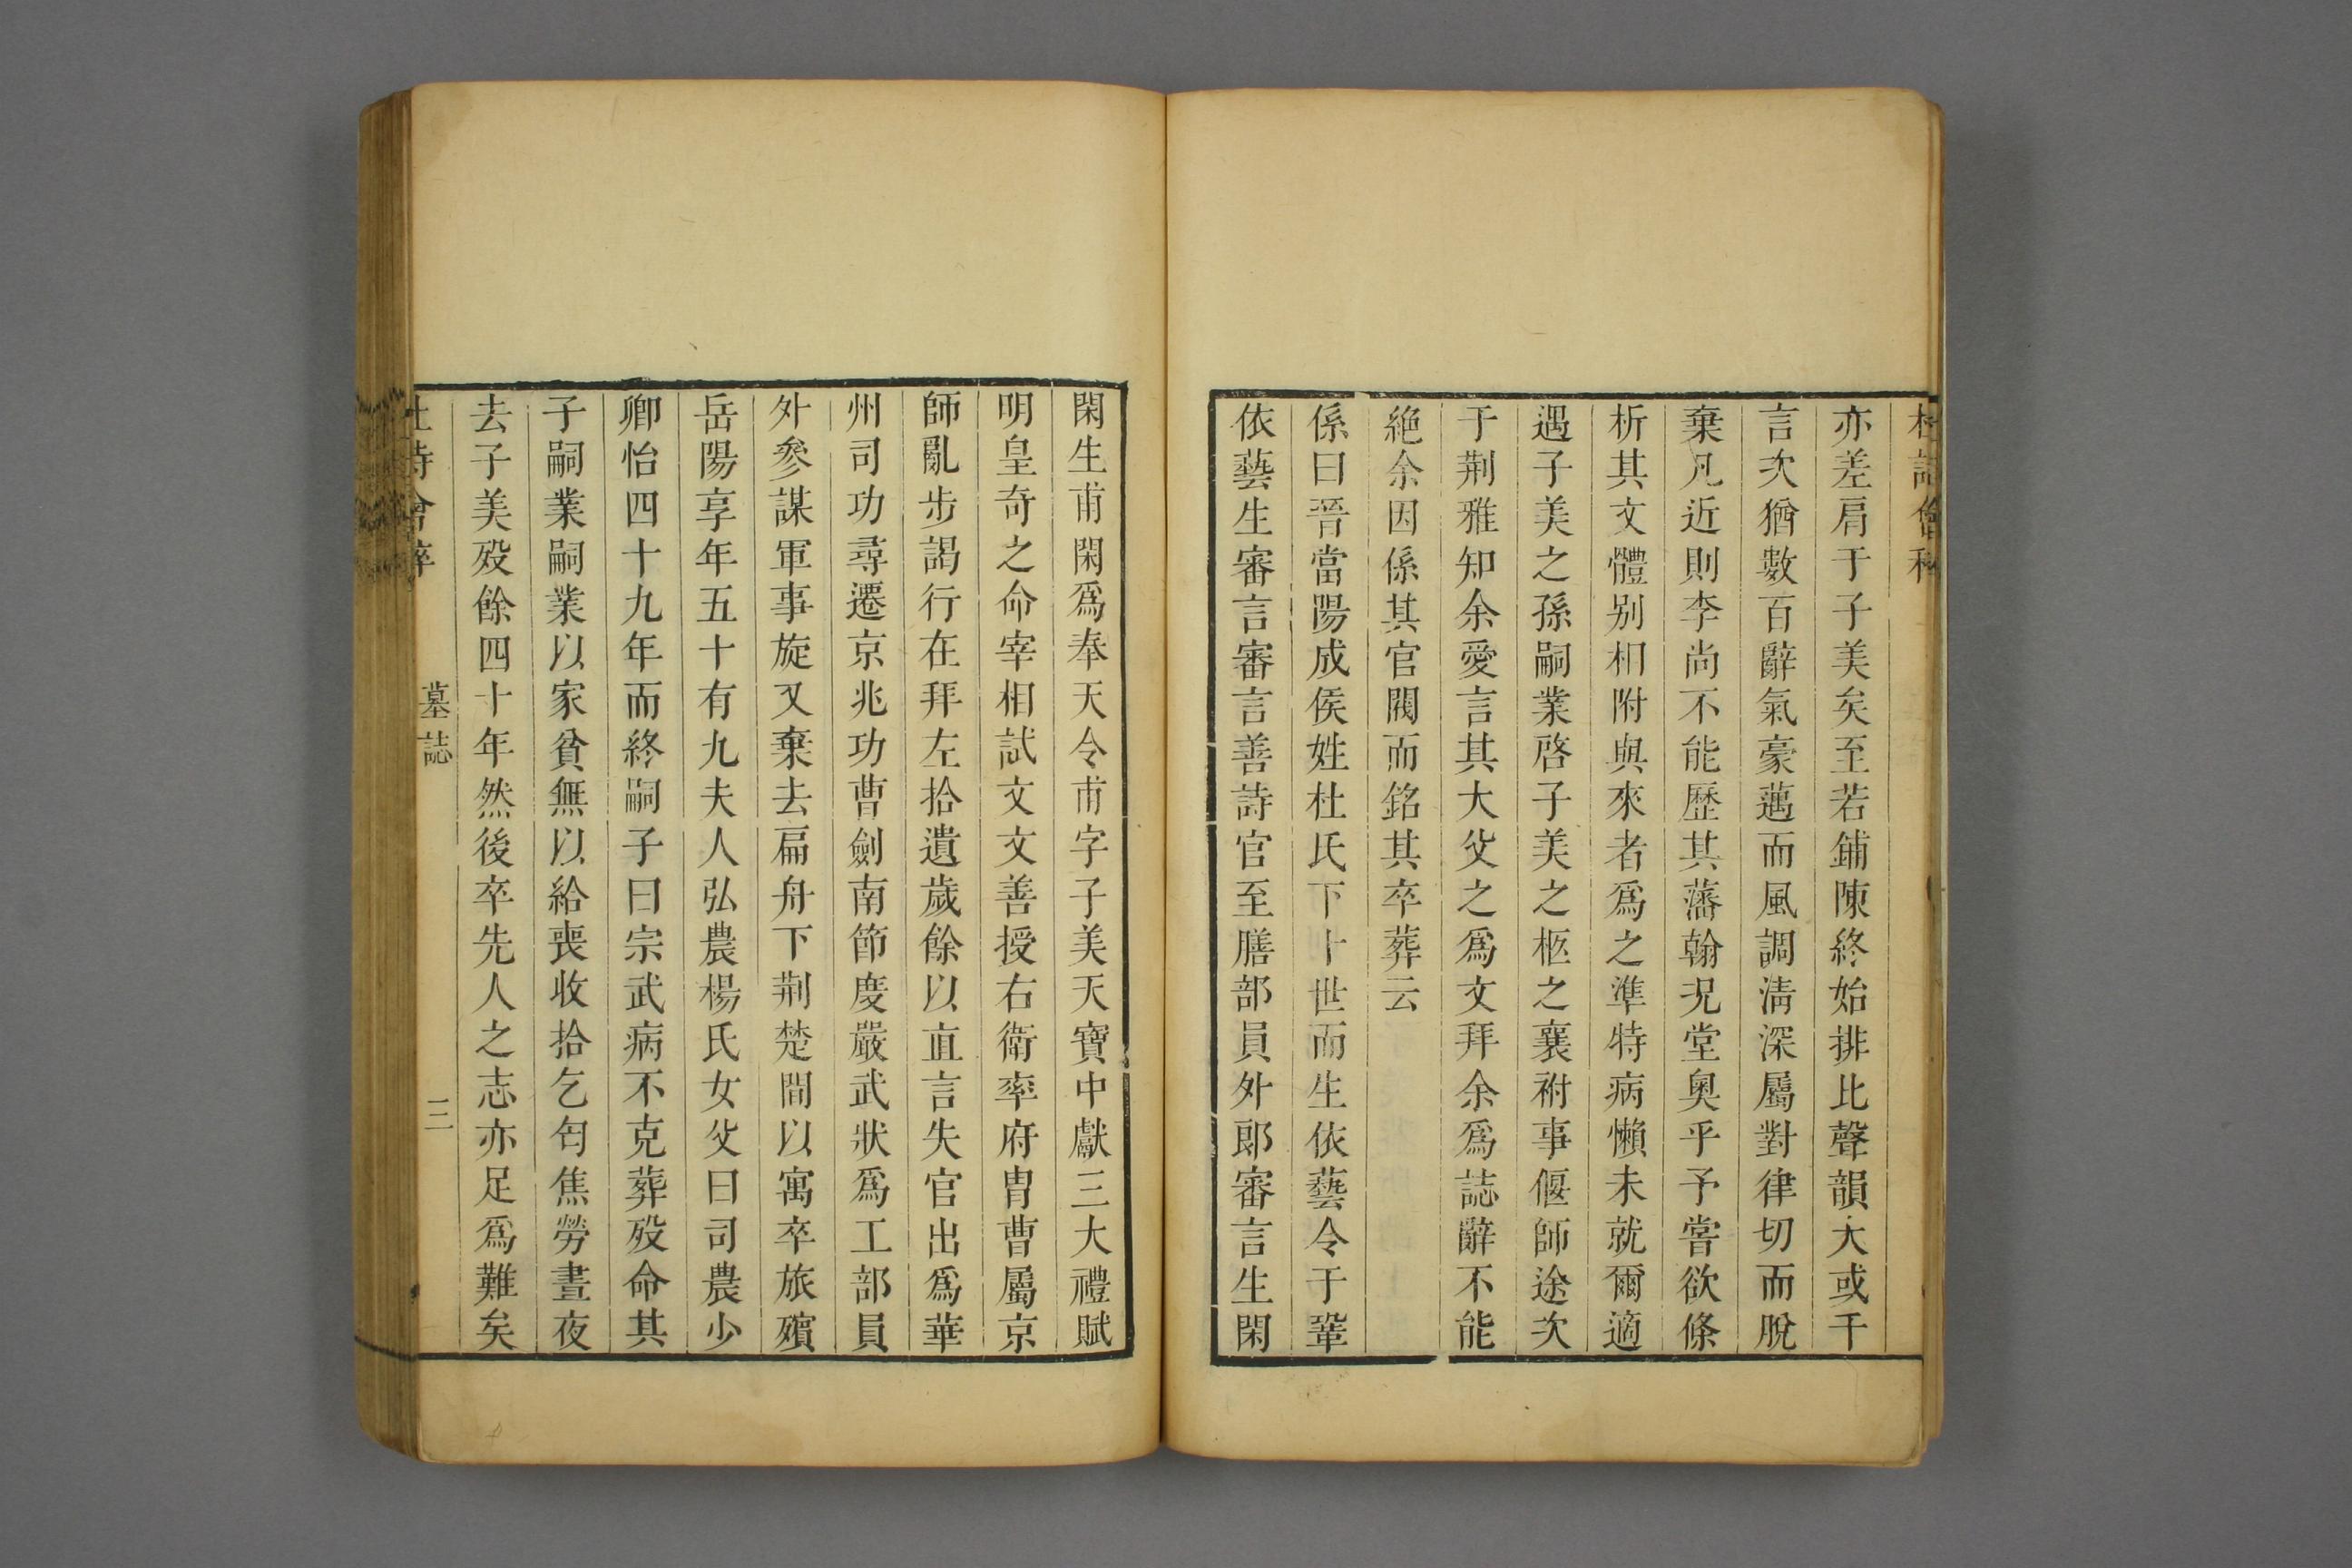 亦差肩于子美矣至若鋪陳終始排比聲韻大或千
言次猶數百辭氣豪邁而風調清深屬對律切而脫
棄凡近則李尚不能歷其藩翰況堂奧乎予嘗欲條
析其文體別相附與來者為之準特病懶未就爾適
遇子美之孫嗣業啓子美之柩之襄祔事偃師途次
于荆雅知余愛言其大父之為文拜余為誌辭不能
絶余因係其官閥而銘其卒葬云
係曰晉當陽成侯姓杜氏下十世而生依藝令于鞏
依藝生審言審言善詩官至膳部員外郎審言生閑
閑生甫閑為奉天令甫字子美天寶中獻三大禮賦
明皇奇之命宰相試文文善授右衛率府胄曹屬京
師亂步謁行在拜左拾遺歲餘以直言失官出為華
州司功尋遷京兆功曹劍南節度嚴武狀為工部員
外參謀軍事旋又棄去扁舟下荆楚間以寓卒旅殯
岳陽享年五十有九夫人弘農楊氏女父曰司農少
卿怡四十九年而終嗣子曰宗武病不克葬歿命其
子嗣業嗣業以家貧無以給喪收拾乞匄焦勞晝夜
去子美歿餘四十年然後卒先人之志亦足為難矣
墓誌 三